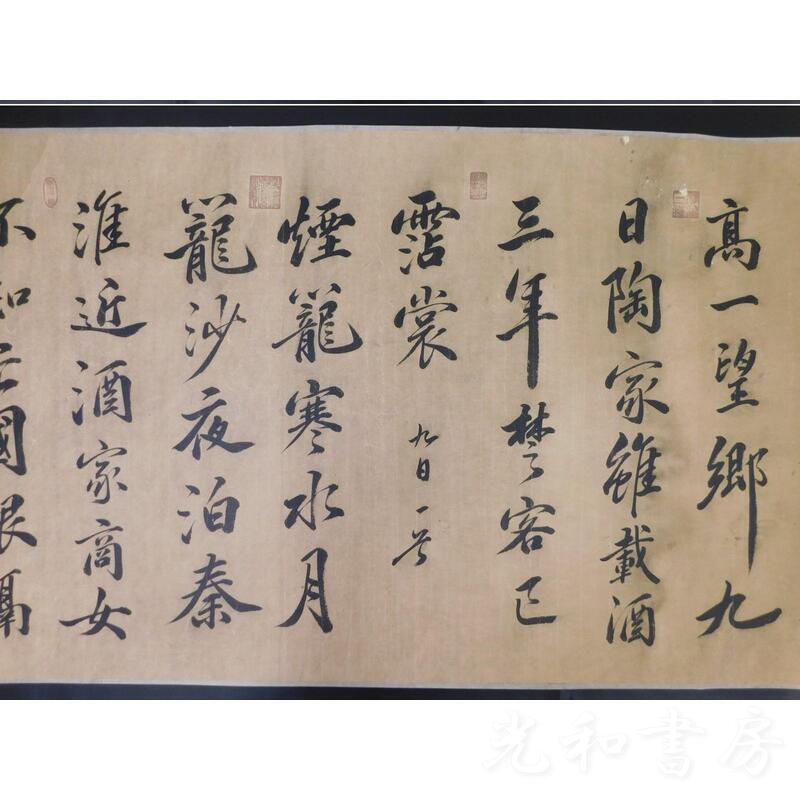 高一望鄉九
日陶家雖載酒
三年楚客已
霑裳
九日一首
煙籠寒水月
籠沙夜泊秦
淮近酒家商女
不知亡國恨隔
光和書房